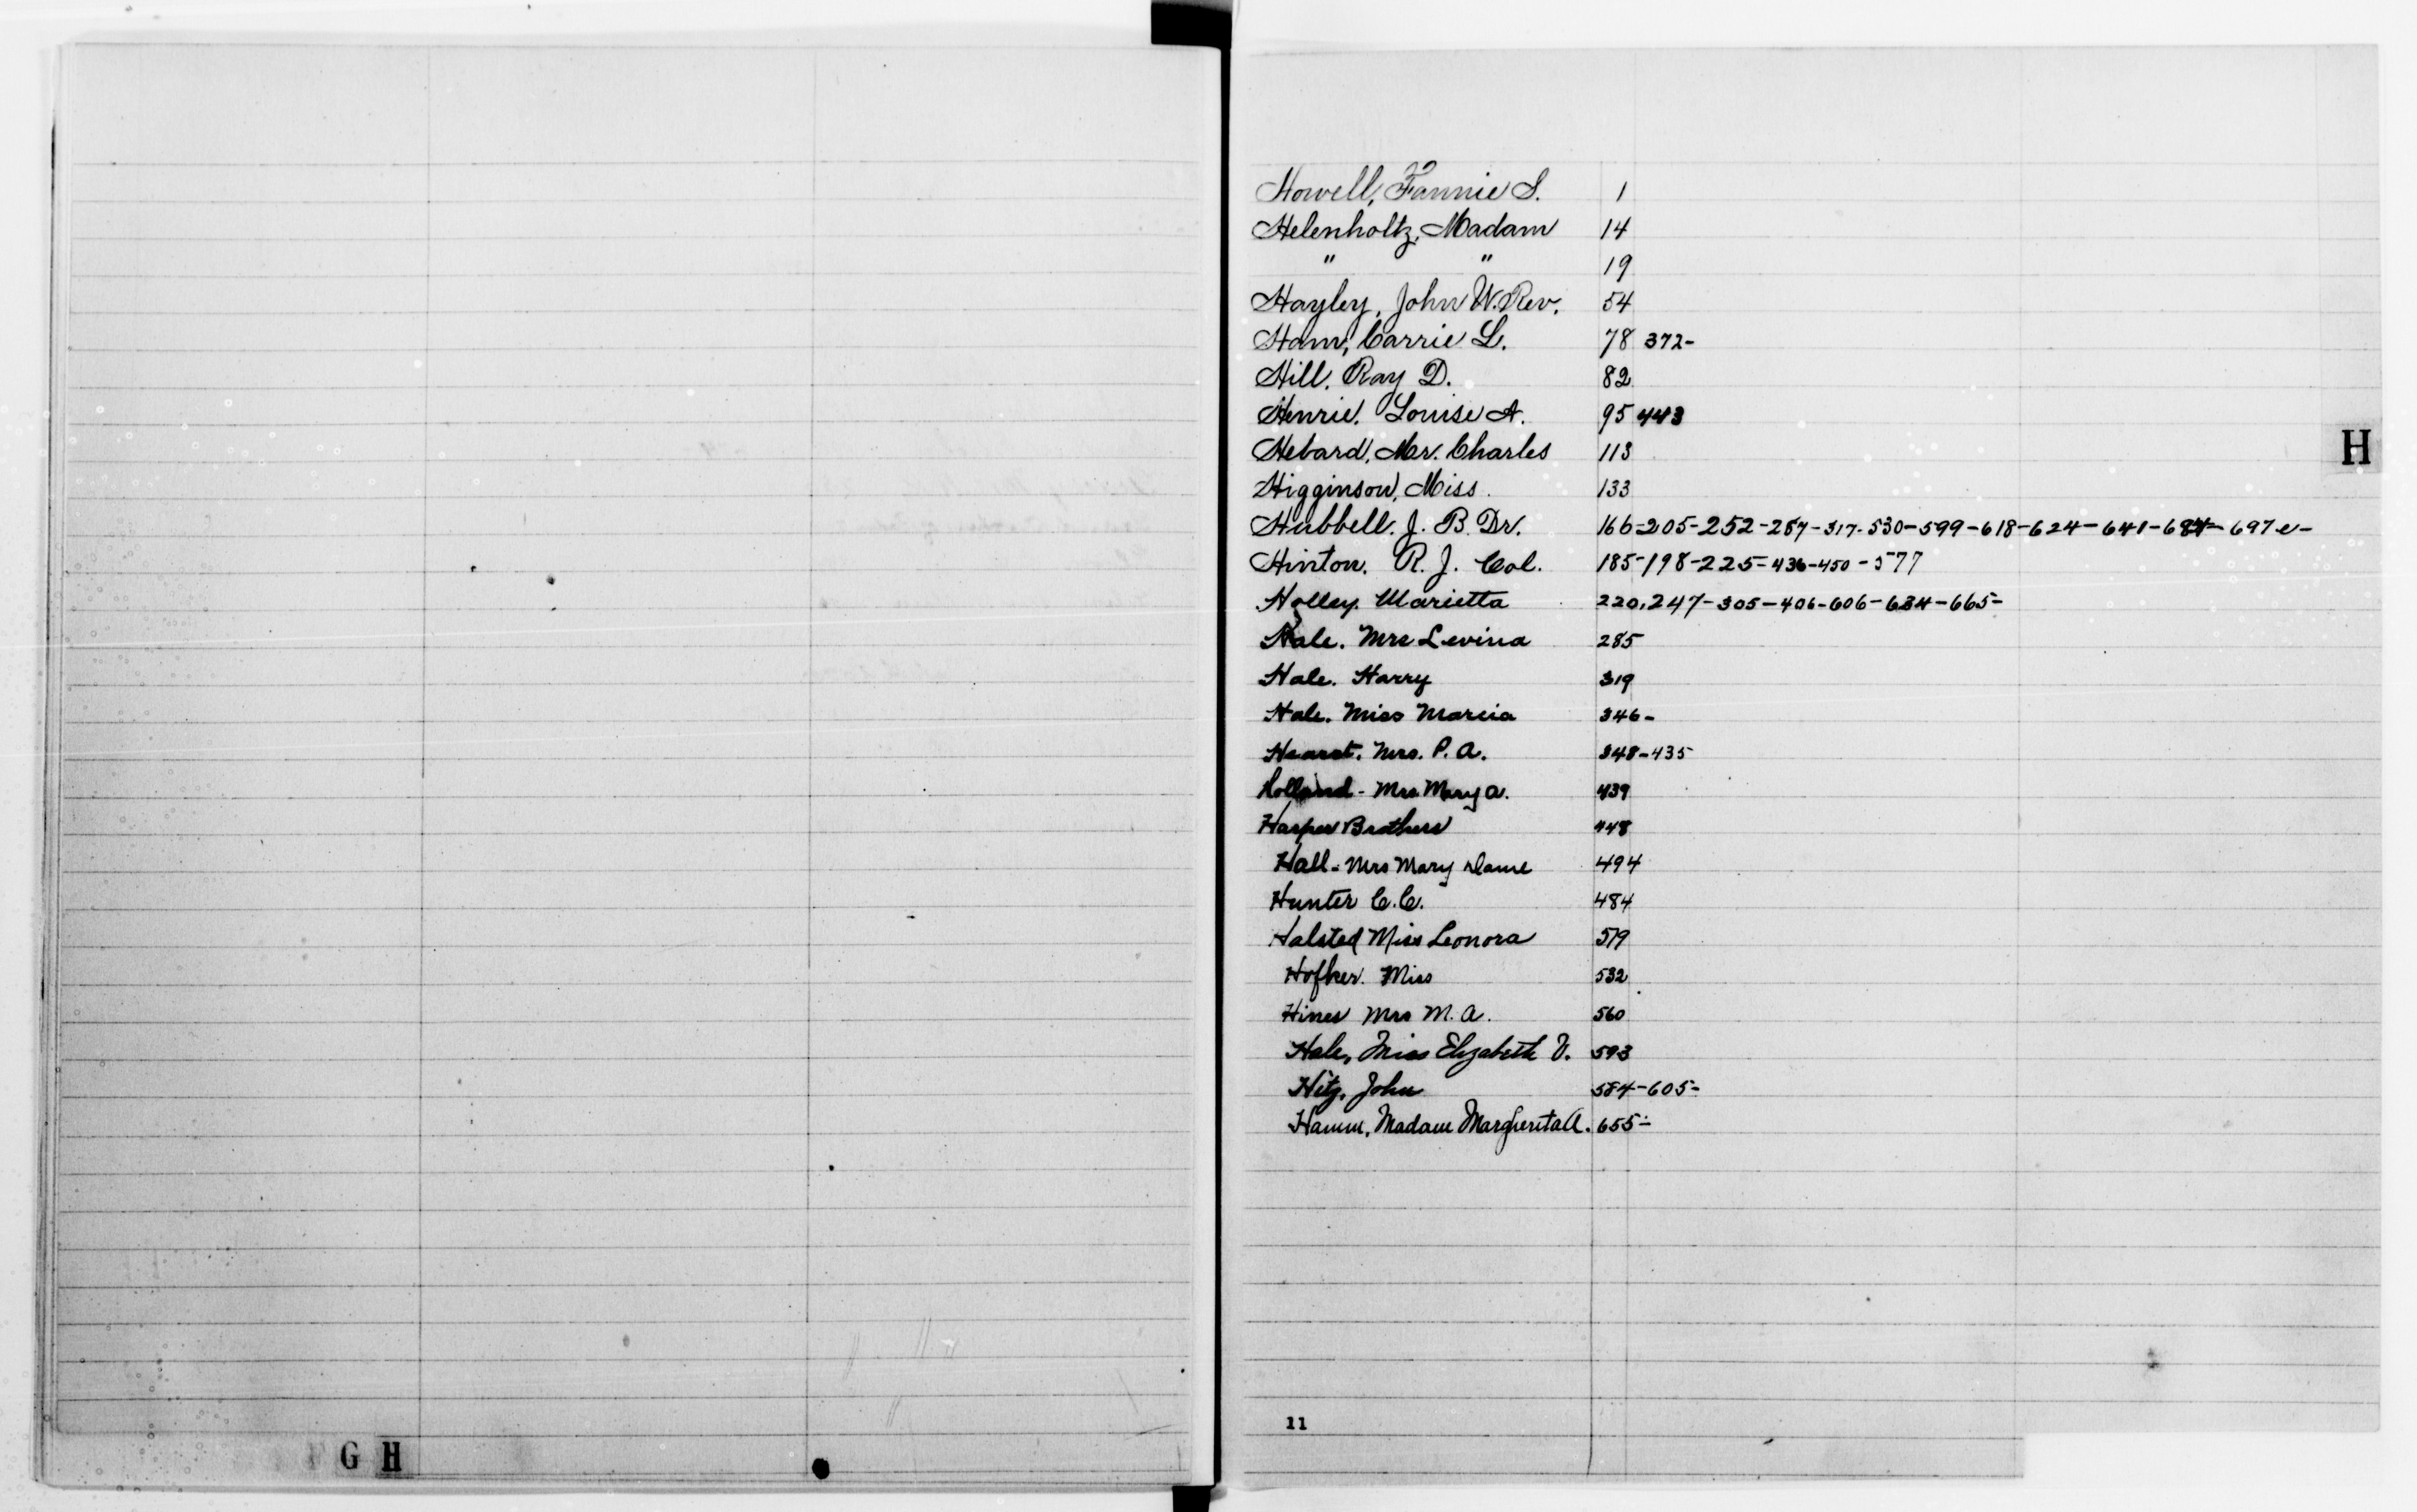 Howell, Fannie S. 1
Helenholtz, Madam 14
" " 19
Hayley, John W. Rev. 54
Ham, Carrie L. 78 372-
Hill, Ray D. 82
Henrie, Louise A. 95 443
Hebard, Mr. Charles 113
Higginson, Miss 133
Hubbell. J. B. Dr. 166-205-252-287-317-530-599-618-624-641-684-697 e-
Hinton. R. J. Col. 185-198-225-436-450-577
Holley. Marietta 220,247-305-406-606-634-665-
Hale. Mrs Levina 285
Hale. Harry 319
Hale. Miss Marcia 346-
Hearst. Mrs. P. A. 348-435
Holland - Mrs Mary A. 439
Harper Brothers 448
Hall - Mrs Mary Dame 494
Hunter C. C. 484
Halsted Miss Leonora 519
Miss 532
Hines Mrs M. A. 560
Hale, Miss Elizabeth V. 593
Hitz, John 584-605-
Hamm, Madam Margherita A. 655-
H
11
G H